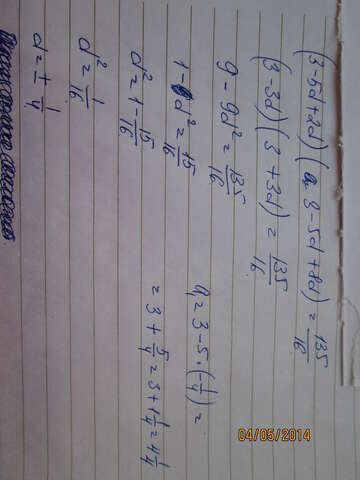 (3-5d+2d)(3-5d+8d)=135/16
(3-3d)(3+3d)=135/16
9-9d²=135/16
1-d²=15/16
d²=1-15/16
d²=1/16
d=±1/4
a₁=3-5·(-1/4)=
=3+5/4=3+1 1/4=4 1/4
04/05/2014